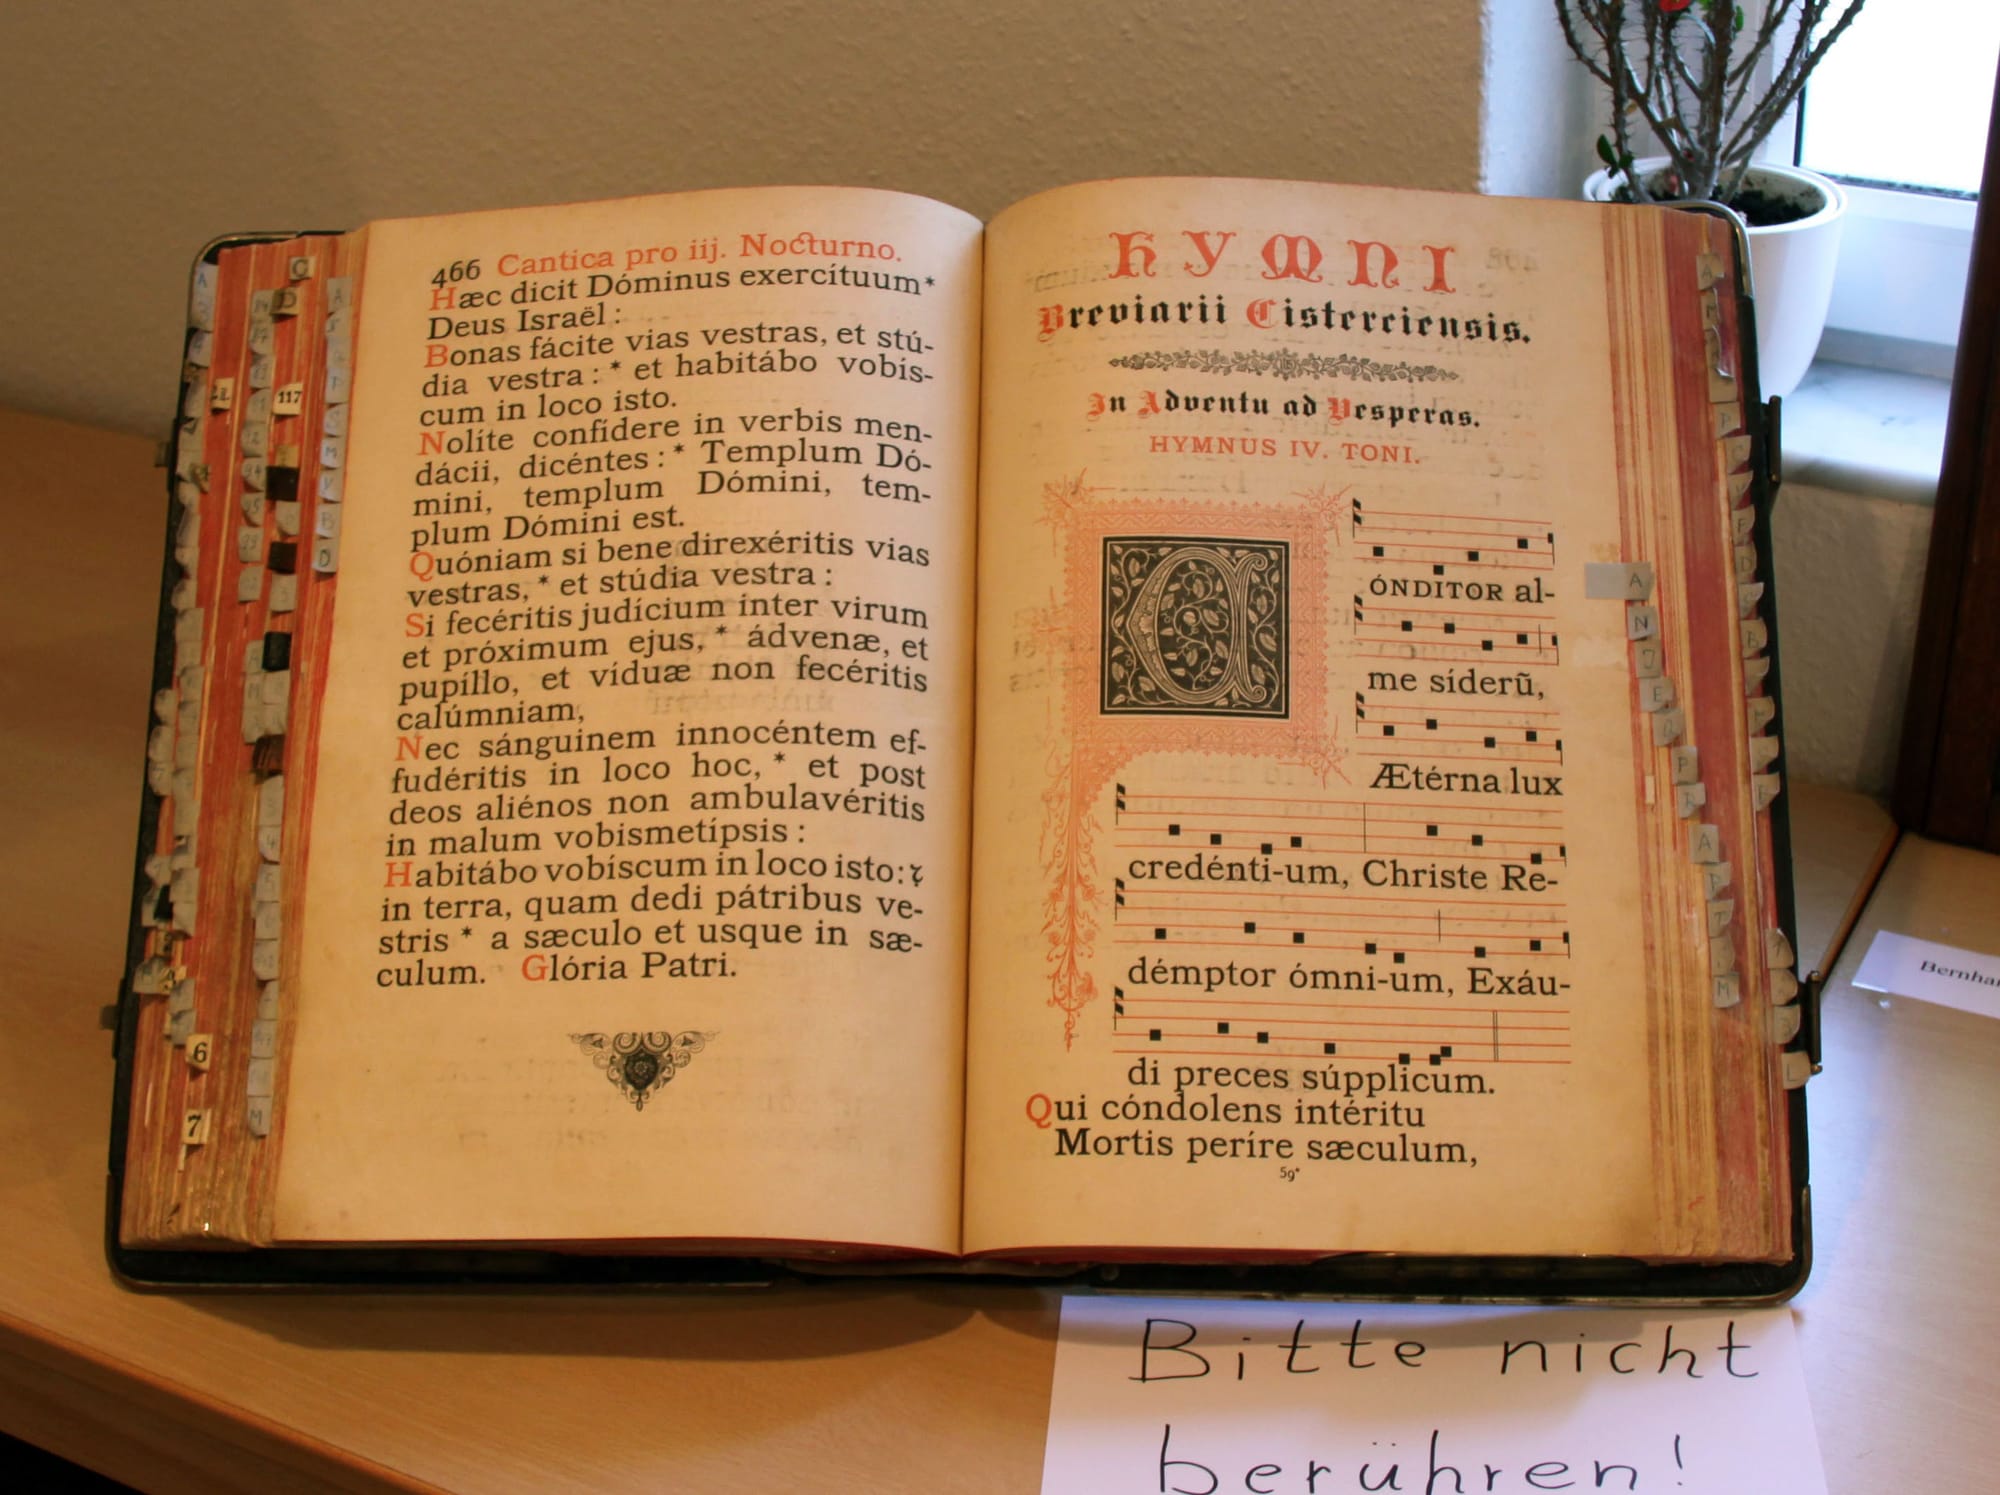 466 Cantica pro iij. Nocturno.
Hæc dicit Dóminus exercítuum*
Deus Israël :
Bonas fácite vias vestras, et stú-
dia vestra : * et habitábo vobis-
cum in loco isto.
Nolíte confídere in verbis men-
dácii, dicéntes : * Templum Dó-
mini, templum Dómini, tem-
plum Dómini est.
Quóniam si bene direxéritis vias
vestras, * et stúdia vestra :
Si fecéritis judícium inter virum
et próximum ejus, * ádvenæ, et
pupíllo, et víduæ non fecéritis
calúmniam,
Nec sánguinem innocéntem ef-
fudéritis in loco hoc, * et post
deos aliénos non ambulavéritis
in malum vobismetípsis :
Habitábo vobíscum in loco isto: ꝛ
in terra, quam dedi pátribus ve-
stris * a sæculo et usque in sæ-
culum. Glória Patri.
HYMNI
Breviarii Cisterciensis.
In Adventu ad Vesperas.
HYMNUS IV. TONI.
CÓNDITOR al-
me síderũ,
Ætérna lux
credénti-um, Christe Re-
démptor ómni-um, Exáu-
di preces súpplicum.
Qui cóndolens intéritu
Mortis períre sæculum,
59*
C
117
6
7
M
A
N
J
E
P
A
M
Bitte nicht
berühren!